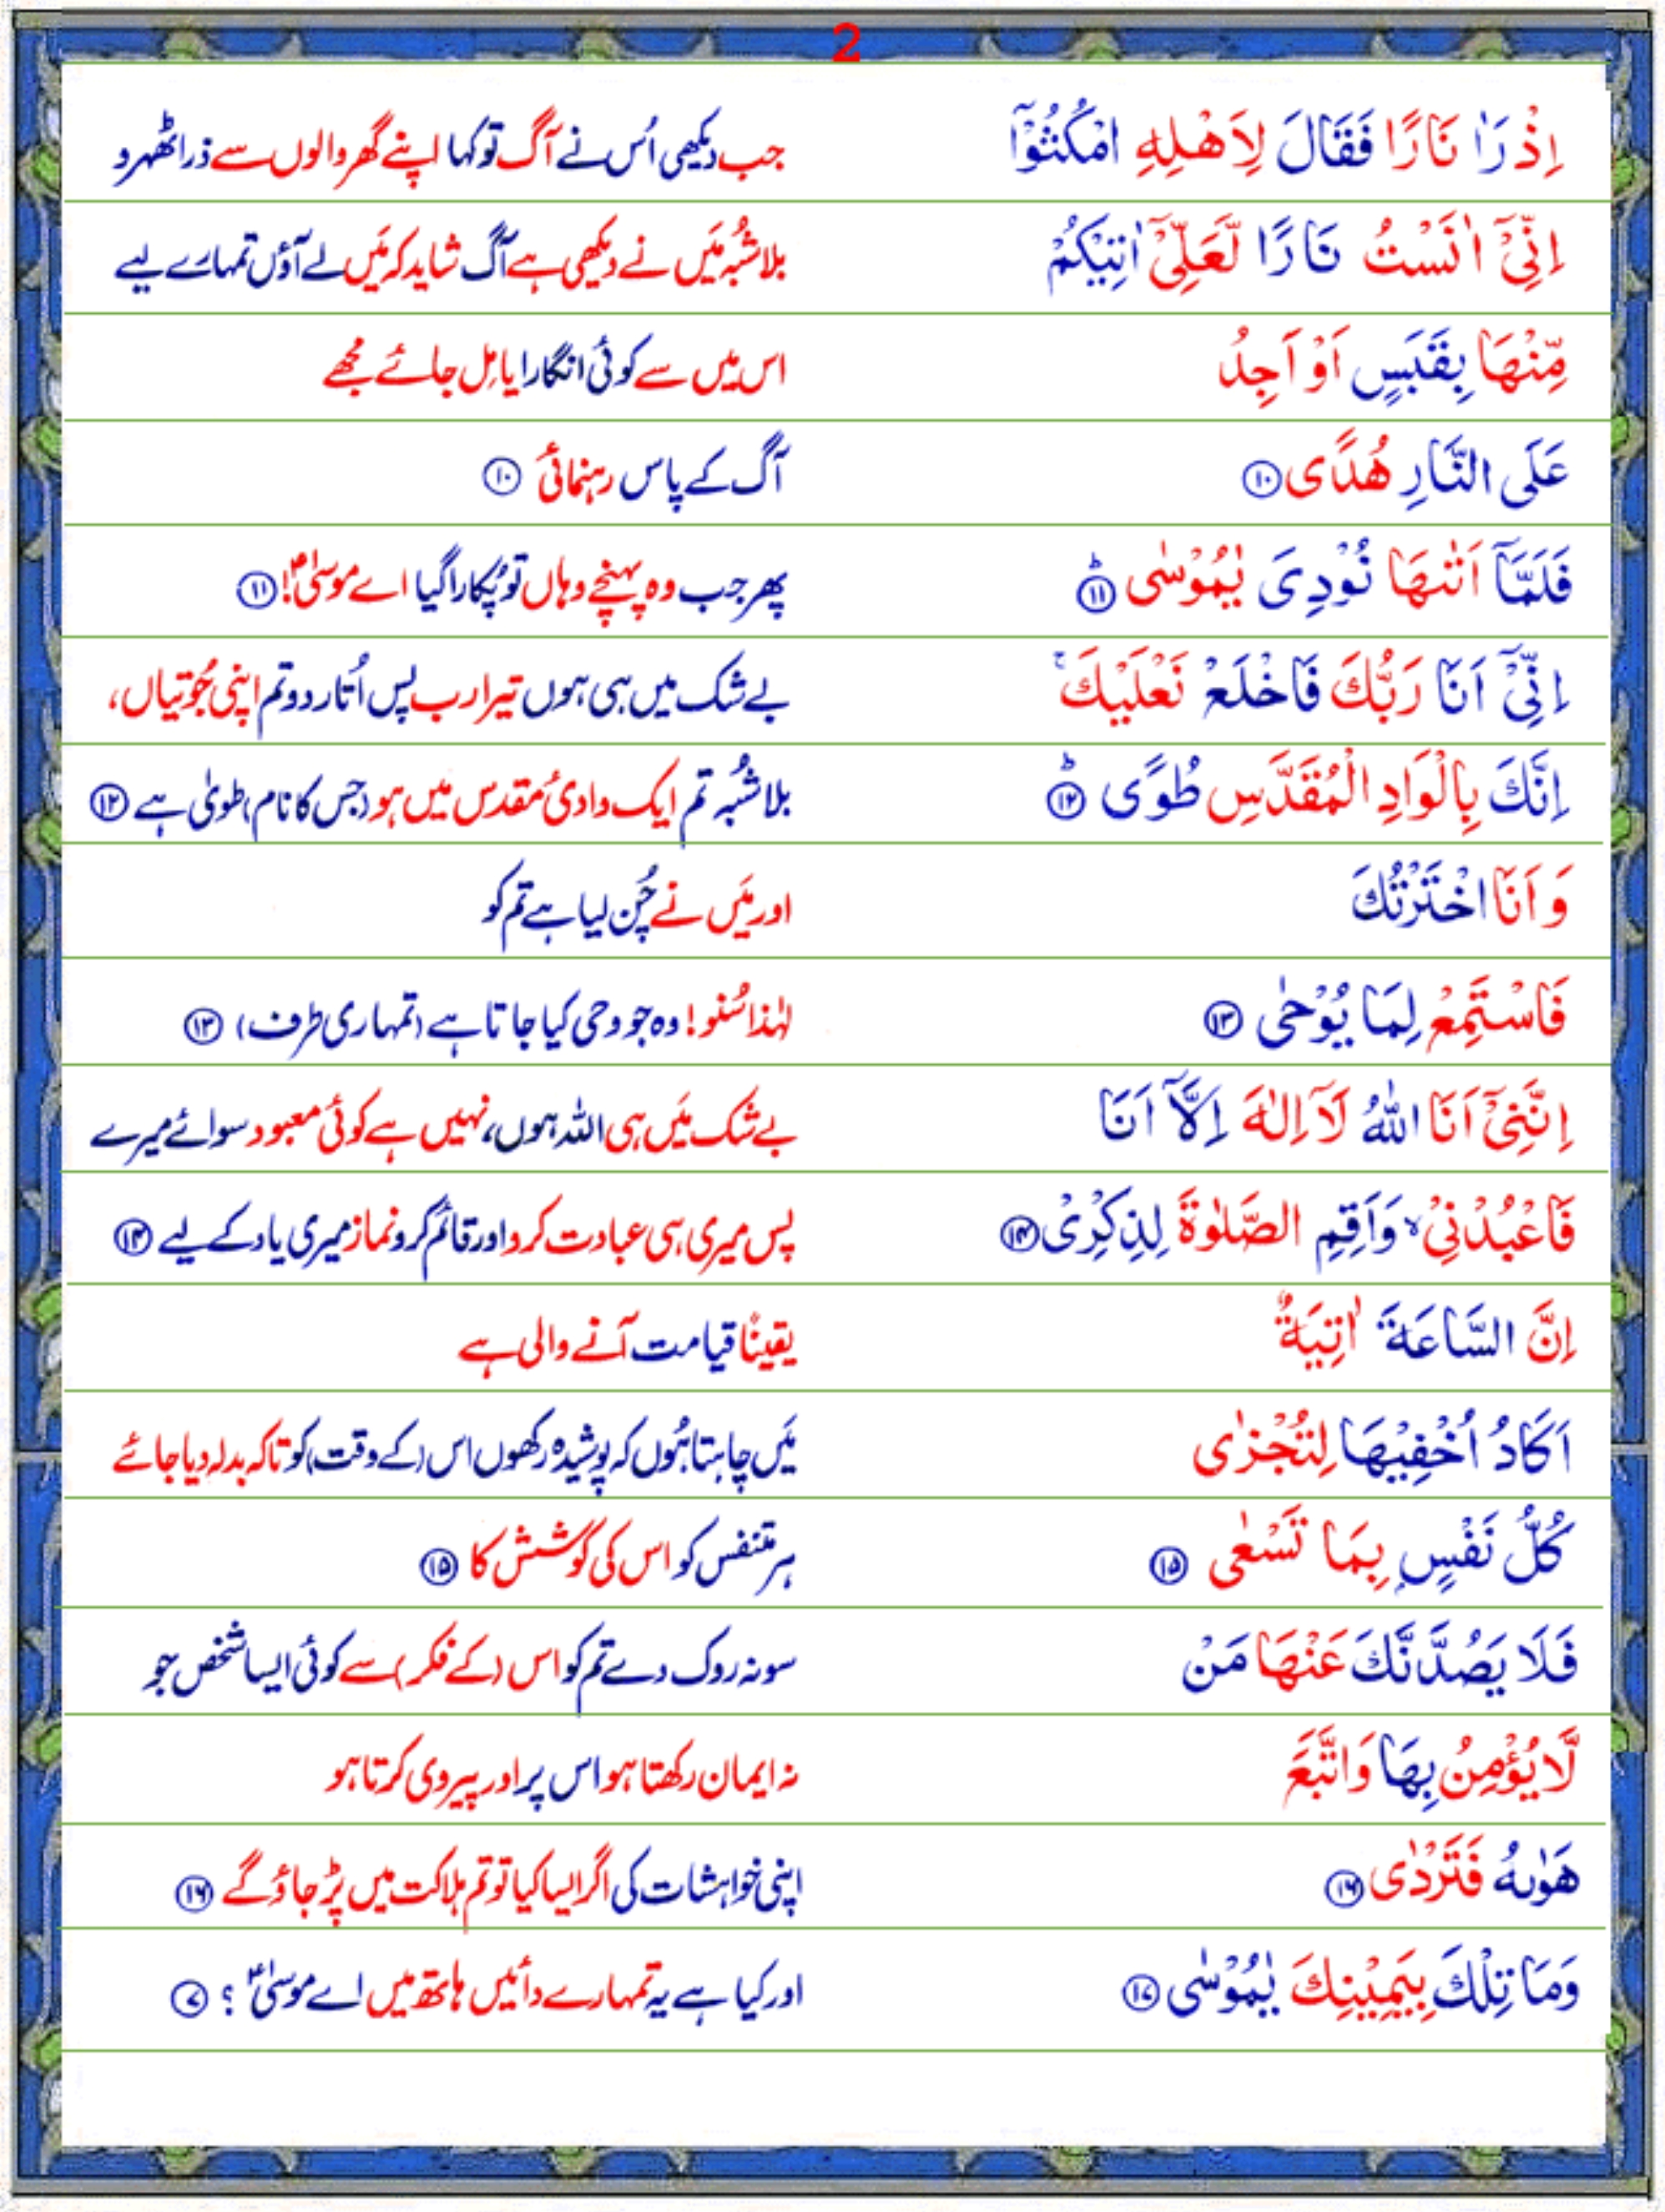 2
اِذْ رَاٰ نَارًا فَقَالَ لِاَهْلِهِ امْكُثُوْۤا جب دیکھی اُس نے آگ تو کہا اپنے گھر والوں سے ذرا ٹھہرو
اِنِّیْۤ اٰنَسْتُ نَارًا لَّعَلِّیْۤ اٰتِیْكُمْ بلاشُبہ مَیں نے دیکھی ہے آگ شاید کہ مَیں لے آؤں تمہارے لیے
مِّنْهَا بِقَبَسٍ اَوْ اَجِدُ اس میں سے کوئی انگارا یا مِل جائے مجھے
عَلَی النَّارِ هُدًی ۱۰ آگ کے پاس رہنمائی ۱۰
فَلَمَّاۤ اَتٰىهَا نُوْدِیَ یٰمُوْسٰی ؕ ۱۱ پھر جب وہ پہنچے وہاں تو پُکارا گیا اے موسیٰؑ! ۱۱
اِنِّیْۤ اَنَا رَبُّكَ فَاخْلَعْ نَعْلَیْكَ ۚ بے شک میں ہی ہوں تیرا رب پس اُتار دو تم اپنی جُوتیاں،
اِنَّكَ بِالْوَادِ الْمُقَدَّسِ طُوًی ؕ ۱۲ بلاشُبہ تم ایک وادیٔ مقدس میں ہو (جس کا نام) طویٰ ہے ۱۲
وَ اَنَا اخْتَرْتُكَ اور مَیں نے چُن لیا ہے تم کو
فَاسْتَمِعْ لِمَا یُوْحٰی ۱۳ لہٰذا سُنو! وہ جو وحی کیا جاتا ہے (تمہاری طرف) ۱۳
اِنَّنِیْۤ اَنَا اللّٰهُ لَاۤ اِلٰهَ اِلَّاۤ اَنَا بے شک مَیں ہی اللہ ہوں، نہیں ہے کوئی معبود سوائے میرے
فَاعْبُدْنِیْ ۙ وَاَقِمِ الصَّلٰوةَ لِذِكْرِیْ ۱۴ پس میری ہی عبادت کرو اور قائم کرو نماز میری یاد کے لیے ۱۴
اِنَّ السَّاعَةَ اٰتِیَةٌ یقینًا قیامت آنے والی ہے
اَكَادُ اُخْفِیْهَا لِتُجْزٰی مَیں چاہتا ہُوں کہ پوشیدہ رکھوں اس (کے وقت) کو تاکہ بدلہ دیا جائے
كُلُّ نَفْسٍۭ بِمَا تَسْعٰی ۱۵ ہر متنفس کو اس کی کوشش کا ۱۵
فَلَا یَصُدَّنَّكَ عَنْهَا مَنْ سو نہ روک دے تم کو اس (کے فکر) سے کوئی ایسا شخص جو
لَّا یُؤْمِنُ بِهَا وَاتَّبَعَ نہ ایمان رکھتا ہو اس پر اور پیروی کرتا ہو
هَوٰىهُ فَتَرْدٰی ۱۶ اپنی خواہشات کی اگر ایسا کیا تو تم ہلاکت میں پڑ جاؤ گے ۱۶
وَمَا تِلْكَ بِیَمِیْنِكَ یٰمُوْسٰی ۱۷ اور کیا ہے یہ تمہارے دائیں ہاتھ میں اے موسیٰؑ ؟ ۷